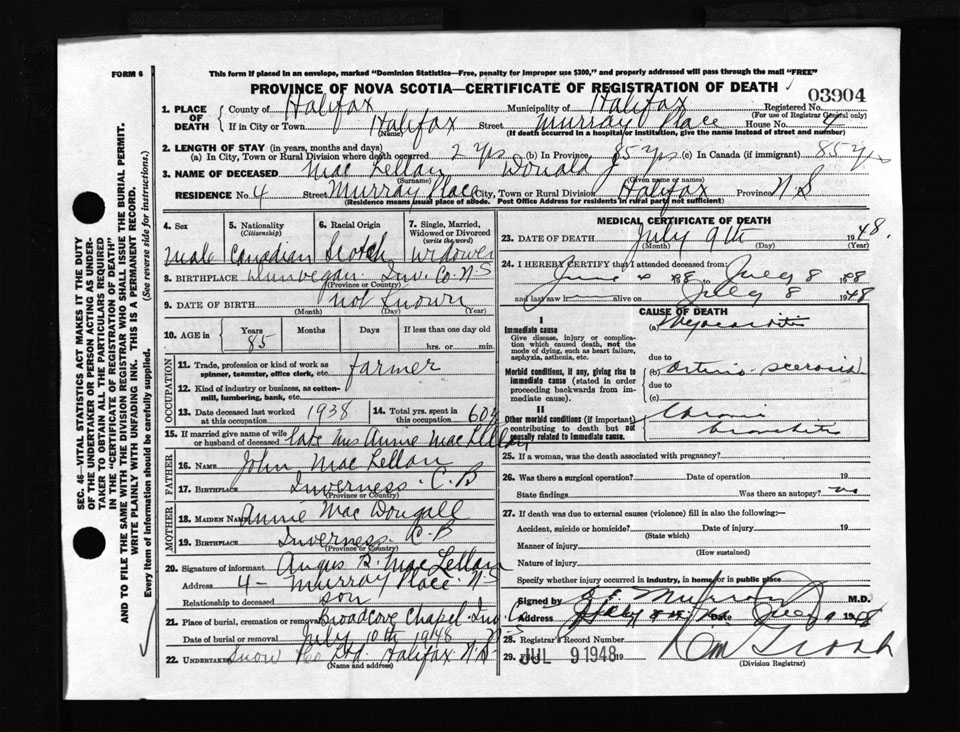 FORM 6
This form if placed in an envelope, marked "Dominion Statistics—Free, penalty for improper use $300," and properly addressed will pass through the mail "FREE"
PROVINCE OF NOVA SCOTIA—CERTIFICATE OF REGISTRATION OF DEATH
03904
1. PLACE OF DEATH
County of Halifax Municipality of Halifax Registered No.
(For use of Registrar General only)
If in City or Town Halifax Street Murray Place House No. 4
(Name) (If death occurred in a hospital or institution, give the name instead of street and number)
2. LENGTH OF STAY (in years, months and days)
(a) In City, Town or Rural Division where death occurred 2 yrs (b) In Province 85 yrs (c) In Canada (if immigrant) 85 yrs
3. NAME OF DECEASED Mac Lellan Donald J
(Surname) (Given name or names)
RESIDENCE No. 4 Street Murray Place City, Town or Rural Division Halifax Province N S
(Residence means usual place of abode. Post Office Address for residents in rural parts not sufficient)
4. Sex 5. Nationality (Citizenship) 6. Racial Origin 7. Single, Married, Widowed or Divorced (write the word)
male Canadian Scotch Widower
8. BIRTHPLACE Dunvegan Inv. Co. N S
(Province or Country)
9. DATE OF BIRTH not known
(Month) (Day) (Year)
10. AGE in Years Months Days If less than one day
85 hrs. or min.
OCCUPATION
11. Trade, profession or kind of work as spinner, teamster, office clerk, etc. farmer
12. Kind of industry or business, as cotton-mill, lumbering, bank, etc.
13. Date deceased last worked at this occupation 1938 14. Total yrs. spent in this occupation 60 y
15. If married give name of wife or husband of deceased late Mrs Annie Mac Lellan
FATHER
16. Name John Mac Lellan
17. Birthplace Inverness C. B
(Province or Country)
MOTHER
18. Maiden Name Annie Mac Dougall
19. Birthplace Inverness C. B
(Province or Country)
20. Signature of informant Angus B. Mac Lellan
Address 4 - Murray Place N-S
Relationship to deceased son
21. Place of burial, cremation or removal Broadcove Chapel Inv. Co
Date of burial or removal July 10th 1948 N-S
22. Undertaker Snow & Co Ltd. Halifax N.S-
(Name and address)
MEDICAL CERTIFICATE OF DEATH
23. DATE OF DEATH July 9th 1948.
(Month) (Day) (Year)
24. I HEREBY CERTIFY that I attended deceased from
June to July 8 1948
and last saw h alive on July 8 1948
CAUSE OF DEATH
I
Immediate cause
Give disease, injury or complication which caused death, not the mode of dying, such as heart failure, asphyxia, asthenia, etc.
(a) Myocarditis
due to
Morbid conditions, if any, giving rise to immediate cause (stated in order proceeding backwards from immediate cause).
(b) Arterio-sclerosis
due to
(c)
II
Other morbid conditions (if important) contributing to death but not causally related to immediate cause.
Chronic
bronchitis
25. If a woman, was the death associated with pregnancy?
26. Was there a surgical operation? Date of operation 19
State findings Was there an autopsy? no
27. If death was due to external causes (violence) fill in also the following:—
Accident, suicide or homicide? Date of injury 19
(State which)
Manner of injury
(How sustained)
Nature of injury
Specify whether injury occurred in industry, in home, or in public place
Signed by M.D.
Address Date July 9 1948
28. Registrar's Record Number
29. JUL 9 1948 19
(Division Registrar)
SEC. 46—VITAL STATISTICS ACT MAKES IT THE DUTY
OF THE UNDERTAKER OR PERSON ACTING AS UNDER-
TAKER TO OBTAIN ALL THE PARTICULARS REQUIRED
IN THE "CERTIFICATE OF REGISTRATION OF DEATH"
AND TO FILE THE SAME WITH THE DIVISION REGISTRAR WHO SHALL ISSUE THE BURIAL PERMIT.
WRITE PLAINLY WITH UNFADING INK. THIS IS A PERMANENT RECORD.
Every item of information should be carefully supplied. (See reverse side for instructions.)